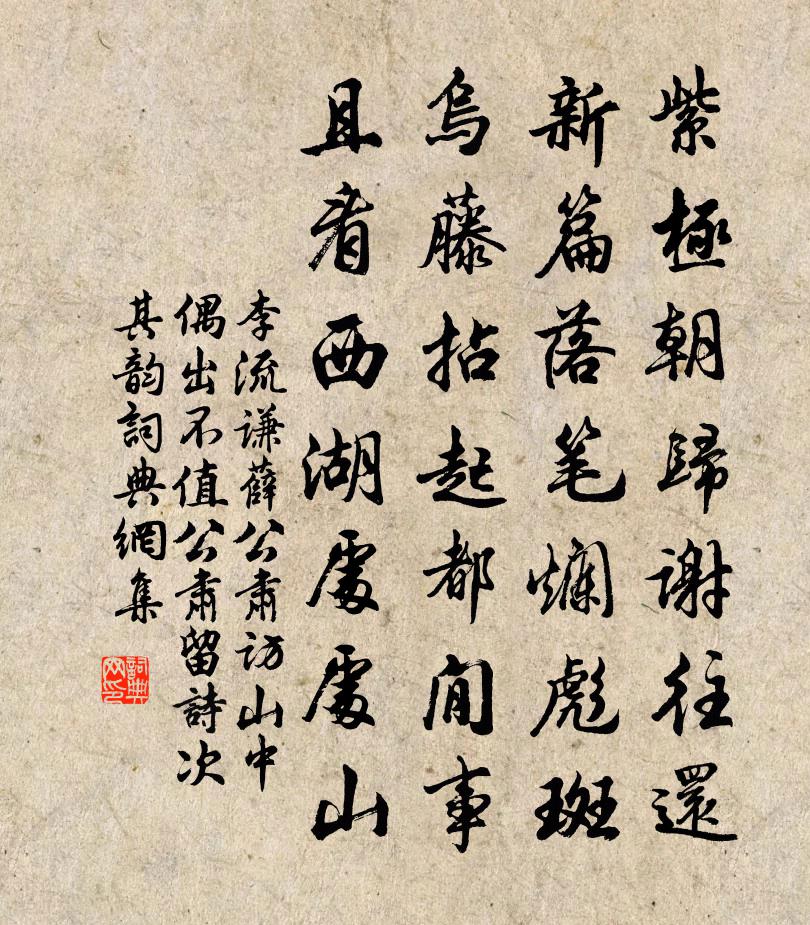 紫極朝歸謝往還
新篇落笔爛彪斑
烏藤拈起都閒事
且看西湖處處山
李流謙薛公肅访山中
偶出不值公肅留詩次
其韵詞典網集
詞典网印